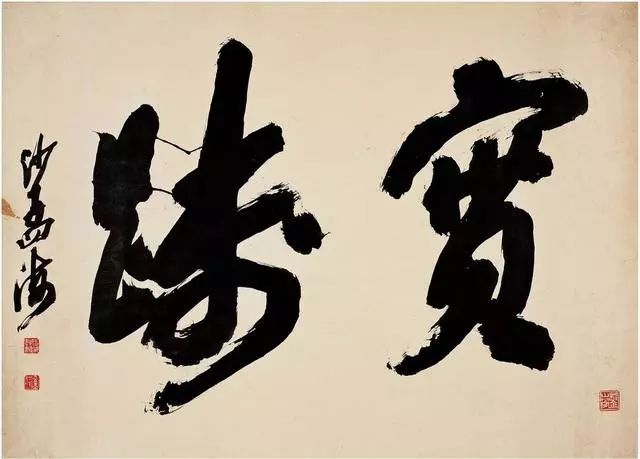 實踐
沙孟海